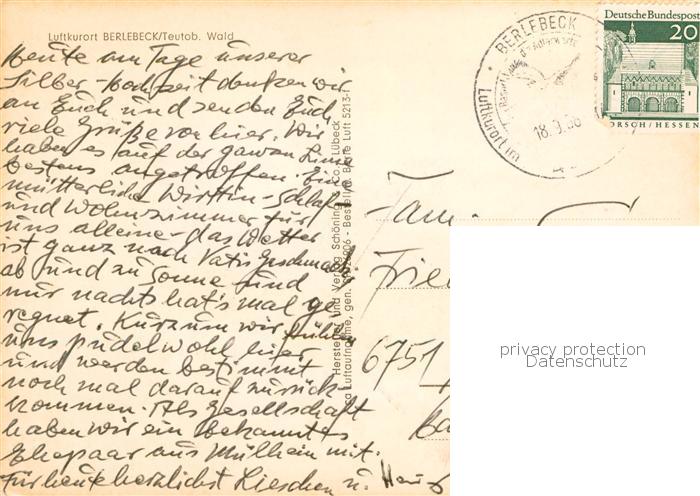 Luftkurort BERLEBECK/Teutob. Wald
Heute am Tage unserer
Silber-Hochzeit denken wir
an Euch und senden Euch
viele Grüße von hier. Wir
haben es auf der ganzen Linie
bestens angetroffen. Eine
mütterliche Wirtin-Schlaf
und Wohnzimmer für
uns alleine - das Wetter
ist ganz nach Vatis Geschmack
ab und zu Sonne und
nur nachts hat's mal ge
regnet. Kurzum wir fühlen
uns pudelwohl hier
und werden bestimmt
noch mal darauf zurück-
kommen. Als Gesellschaft
haben wir ein bekanntes
Ehepaar aus Mülheim mit.
Für heute herzlichst Lieschen u. Hans
Hersteller und Verlag Schöning & Co. Lübeck
Luftaufnahme, gen. - Bestell-Nr. Berle Luft 5213-1
BERLEBECK
Luftkurort im
18.9.66
Deutsche Bundespost
20
LORSCH/HESSEN
Fam.
Frie
6751
privacy protection
Datenschutz